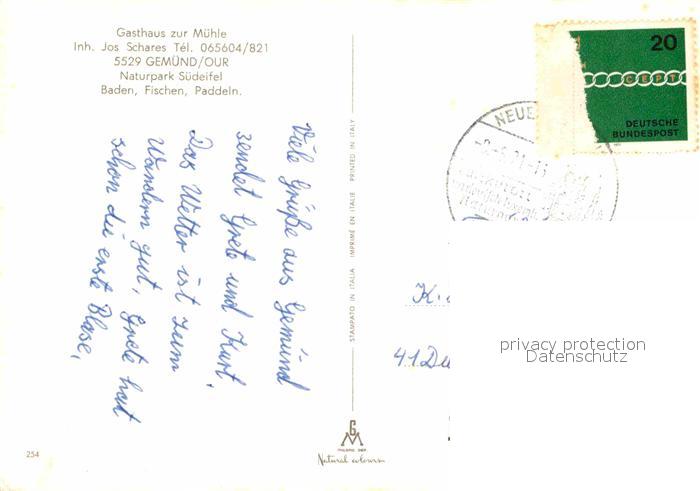 Gasthaus zur Mühle
Inh. Jos Schares Tél. 065604/821
5529 GEMÜND/OUR
Naturpark Südeifel
Baden, Fischen, Paddeln.
Viele Grüße aus Gemünd
sendet Grete und Kurt.
Das Wetter ist zum
Wandern gut, Grete hat
schon die erste Blase,
STAMPATO IN ITALIA IMPRIMÉ EN ITALIE PRINTED IN ITALY
20
CEPT
DEUTSCHE
BUNDESPOST
NEUE
K.
41 Du
privacy protection
Datenschutz
254
GM
Natural colours